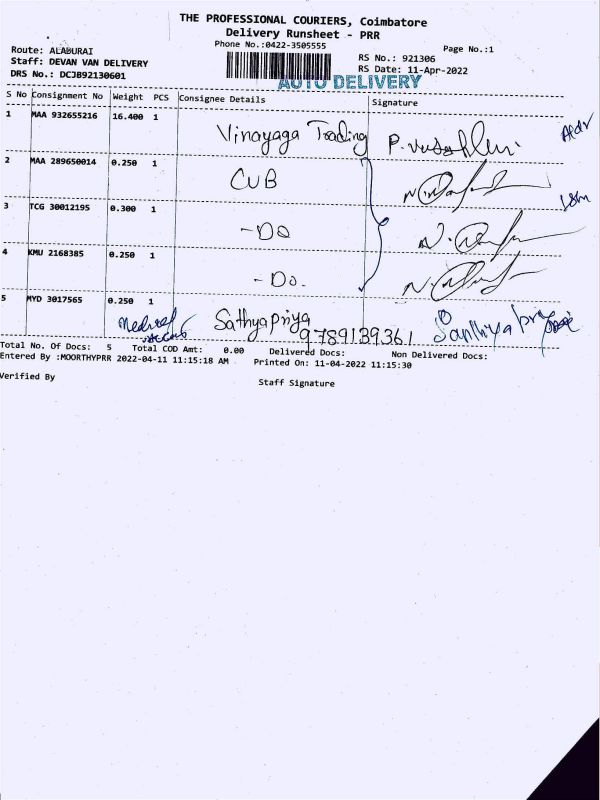 THE PROFESSIONAL COURIERS, Coimbatore
Delivery Runsheet - PRR
Phone No.:0422-3505555
Page No.:1
Route: ALABURAI
RS No.: 921306
Staff: DEVAN VAN DELIVERY
RS Date: 11-Apr-2022
DRS No.: DCJB92130601
AUTO DELIVERY
S No Consignment No Weight PCS Consignee Details Signature
1 MAA 932655216 16.400 1 Vinayaga Trading
2 MAA 289650014 0.250 1 CUB
3 TCG 30012195 0.300 1 -DO
4 KMU 2168385 0.250 1 -Do.
5 MYD 3017565 0.250 1 Sathyapriya
9789139361
Total No. Of Docs: 5 Total COD Amt: 0.00 Delivered Docs: Non Delivered Docs:
Entered By :MOORTHYPRR 2022-04-11 11:15:18 AM Printed On: 11-04-2022 11:15:30
Verified By
Staff Signature